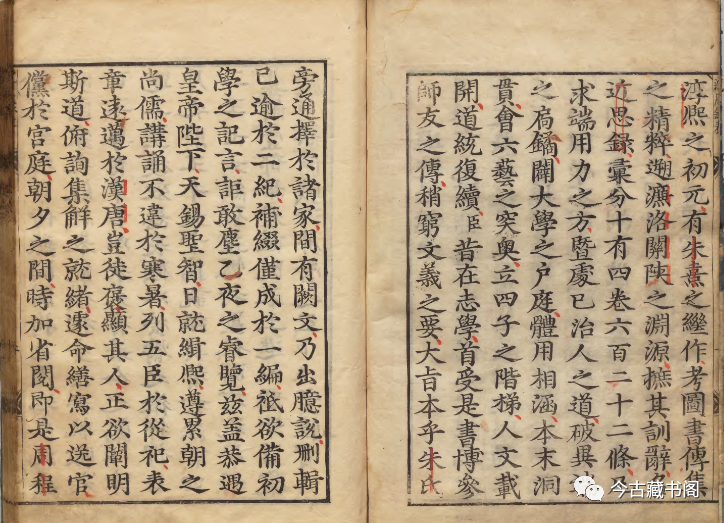 淳熙之初元有朱熹之繼作考圖書傳集
之精粹遡濂洛關陝之淵源摭其訓辭
近思錄彙分十有四卷六百二十二條
求端用力之方暨處已治人之道破異
之扃鐍闢大學之户庭體用相涵本末洞
貫會六藝之突奧立四子之階梯人文載
開道統復續臣昔在志學首受是書博參
師友之傳稍窮文義之要大旨本乎朱氏
旁通擇於諸家間有闕文乃出臆說刪輯
已逾於二紀補綴僅成於一編祗欲備初
學之記言詎敢塵乙夜之睿覽茲益恭遇
皇帝陛下天錫聖智日就緝熙遵累朝之
尚儒講誦不違於寒暑列五臣於從祀表
章遠邁於漢唐豈徒褒顯其人正欲闡明
斯道俯詢集解之就緒遽命繕寫以送官
儻於宮庭朝夕之間時加省閱即是周程
今古藏书阁